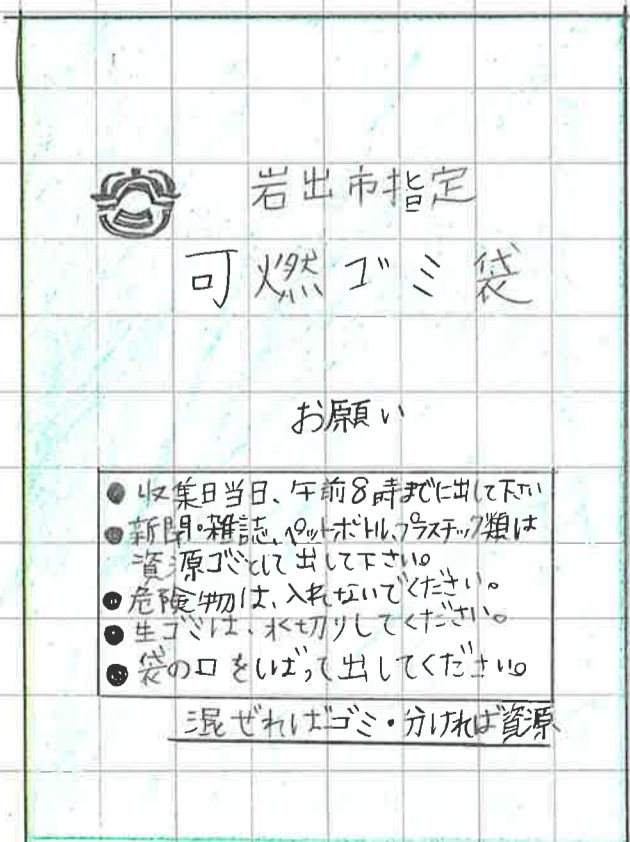 岩出市指定
可燃ゴミ袋
お願い
● 収集日当日、午前8時までに出して下さい
● 新聞・雑誌、ペットボトル、プラスチック類は
資源ゴミとして出して下さい。
● 危険物は、入れないでください。
● 生ゴミは、水切りしてください。
● 袋の口をしばって出してください。
混ぜればゴミ・分ければ資源